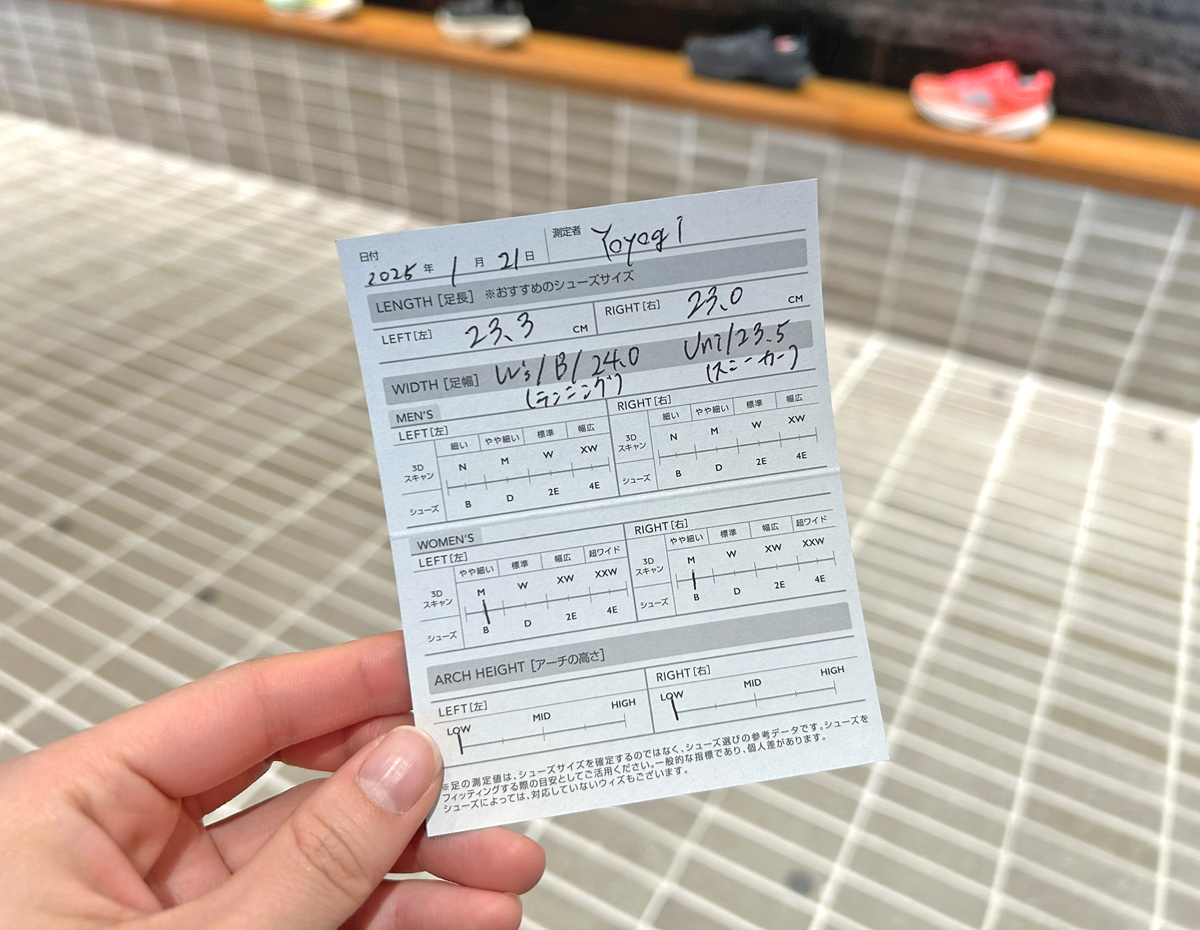 日付 測定者 Yoyogi
2025 年 1 月 21 日
LENGTH [足長] ※おすすめのシューズサイズ
LEFT[左] 23.3 CM RIGHT[右] 23.0 CM
WIDTH [足幅] W's/B/24.0 Uni/23.5
(ランニング) (スニーカー)
MEN'S
LEFT[左] RIGHT[右]
細い やや細い 標準 幅広 細い やや細い 標準 幅広
3Dスキャン N M W XW 3Dスキャン N M W XW
シューズ B D 2E 4E シューズ B D 2E 4E
WOMEN'S
LEFT[左] RIGHT[右]
やや細い 標準 幅広 超ワイド やや細い 標準 幅広 超ワイド
3Dスキャン M W XW XXW 3Dスキャン M W XW XXW
シューズ B D 2E 4E シューズ B D 2E 4E
ARCH HEIGHT [アーチの高さ]
LEFT[左] RIGHT[右]
LOW MID HIGH LOW MID HIGH
※足の測定値は、シューズサイズを確定するのではなく、シューズ選びの参考データです。シューズを
フィッティングする際の目安としてご活用ください。一般的な指標であり、個人差があります。
シューズによっては、対応していないウィズもございます。